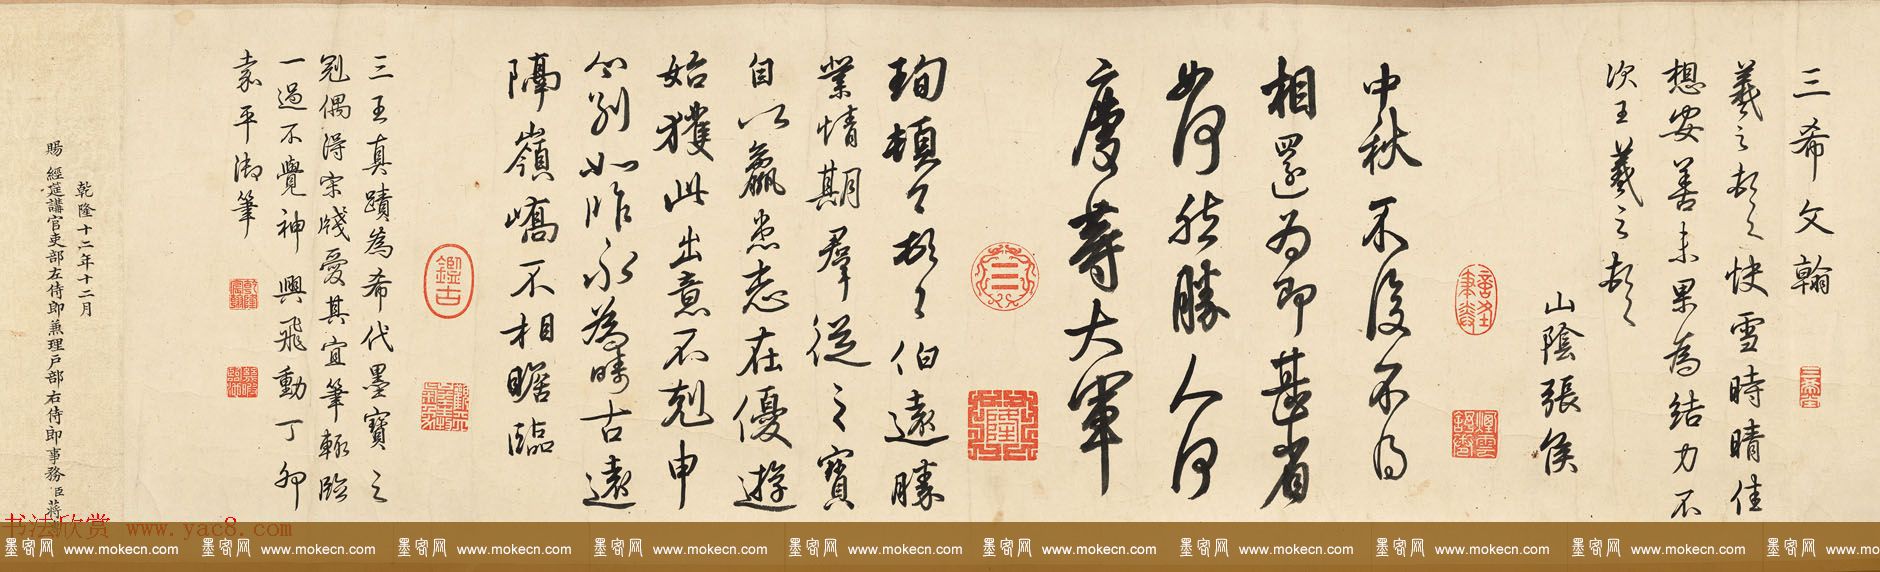 三希文翰
羲之頓首快雪時晴佳
想安善未果為結力不
次王羲之頓首
山陰張侯
中秋不復不得
相還為即甚省
如何然勝人何
慶等大軍
珣頓首頓首伯遠勝
業情期群從之寶
自以羸患志在優遊
始獲此出意不剋申
分別如昨永為疇古遠
隔嶺嶠不相瞻臨
三王真蹟為希代墨寶之
冠偶得宋牋愛其宜筆輒臨
一過不覺神興飛動丁卯
嘉平御筆
乾隆十二年十二月
賜經筵講官吏部左侍郎兼理戶部右侍郎事務臣蔣
三希堂
鑑古
乾隆
书法欣赏 www.yac8.com
墨客网 www.mokecn.com 墨客网 www.mokecn.com 墨客网 www.mokecn.com 墨客网 www.mokecn.com 墨客网 www.mokecn.com 墨客网 www.mokecn.com 墨客网 www.mokecn.com 墨客网 www.mokecn.com 墨客网 www.mokecn.com 墨客网 www.mokecn.com